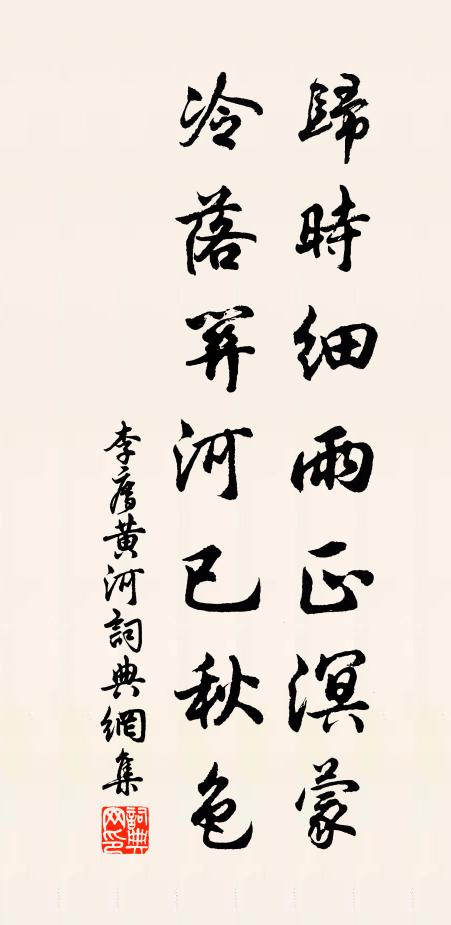 歸時細雨正溟蒙
冷落關河已秋色
李廌黃河詞典網集
詞典網印